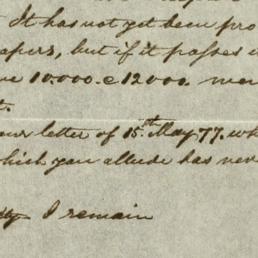 It has not yet been pro
apers, but if it passes
10.000. @ 12000.
t.
our letter of 15th May. 77. wh
which you allude has nev
I remain